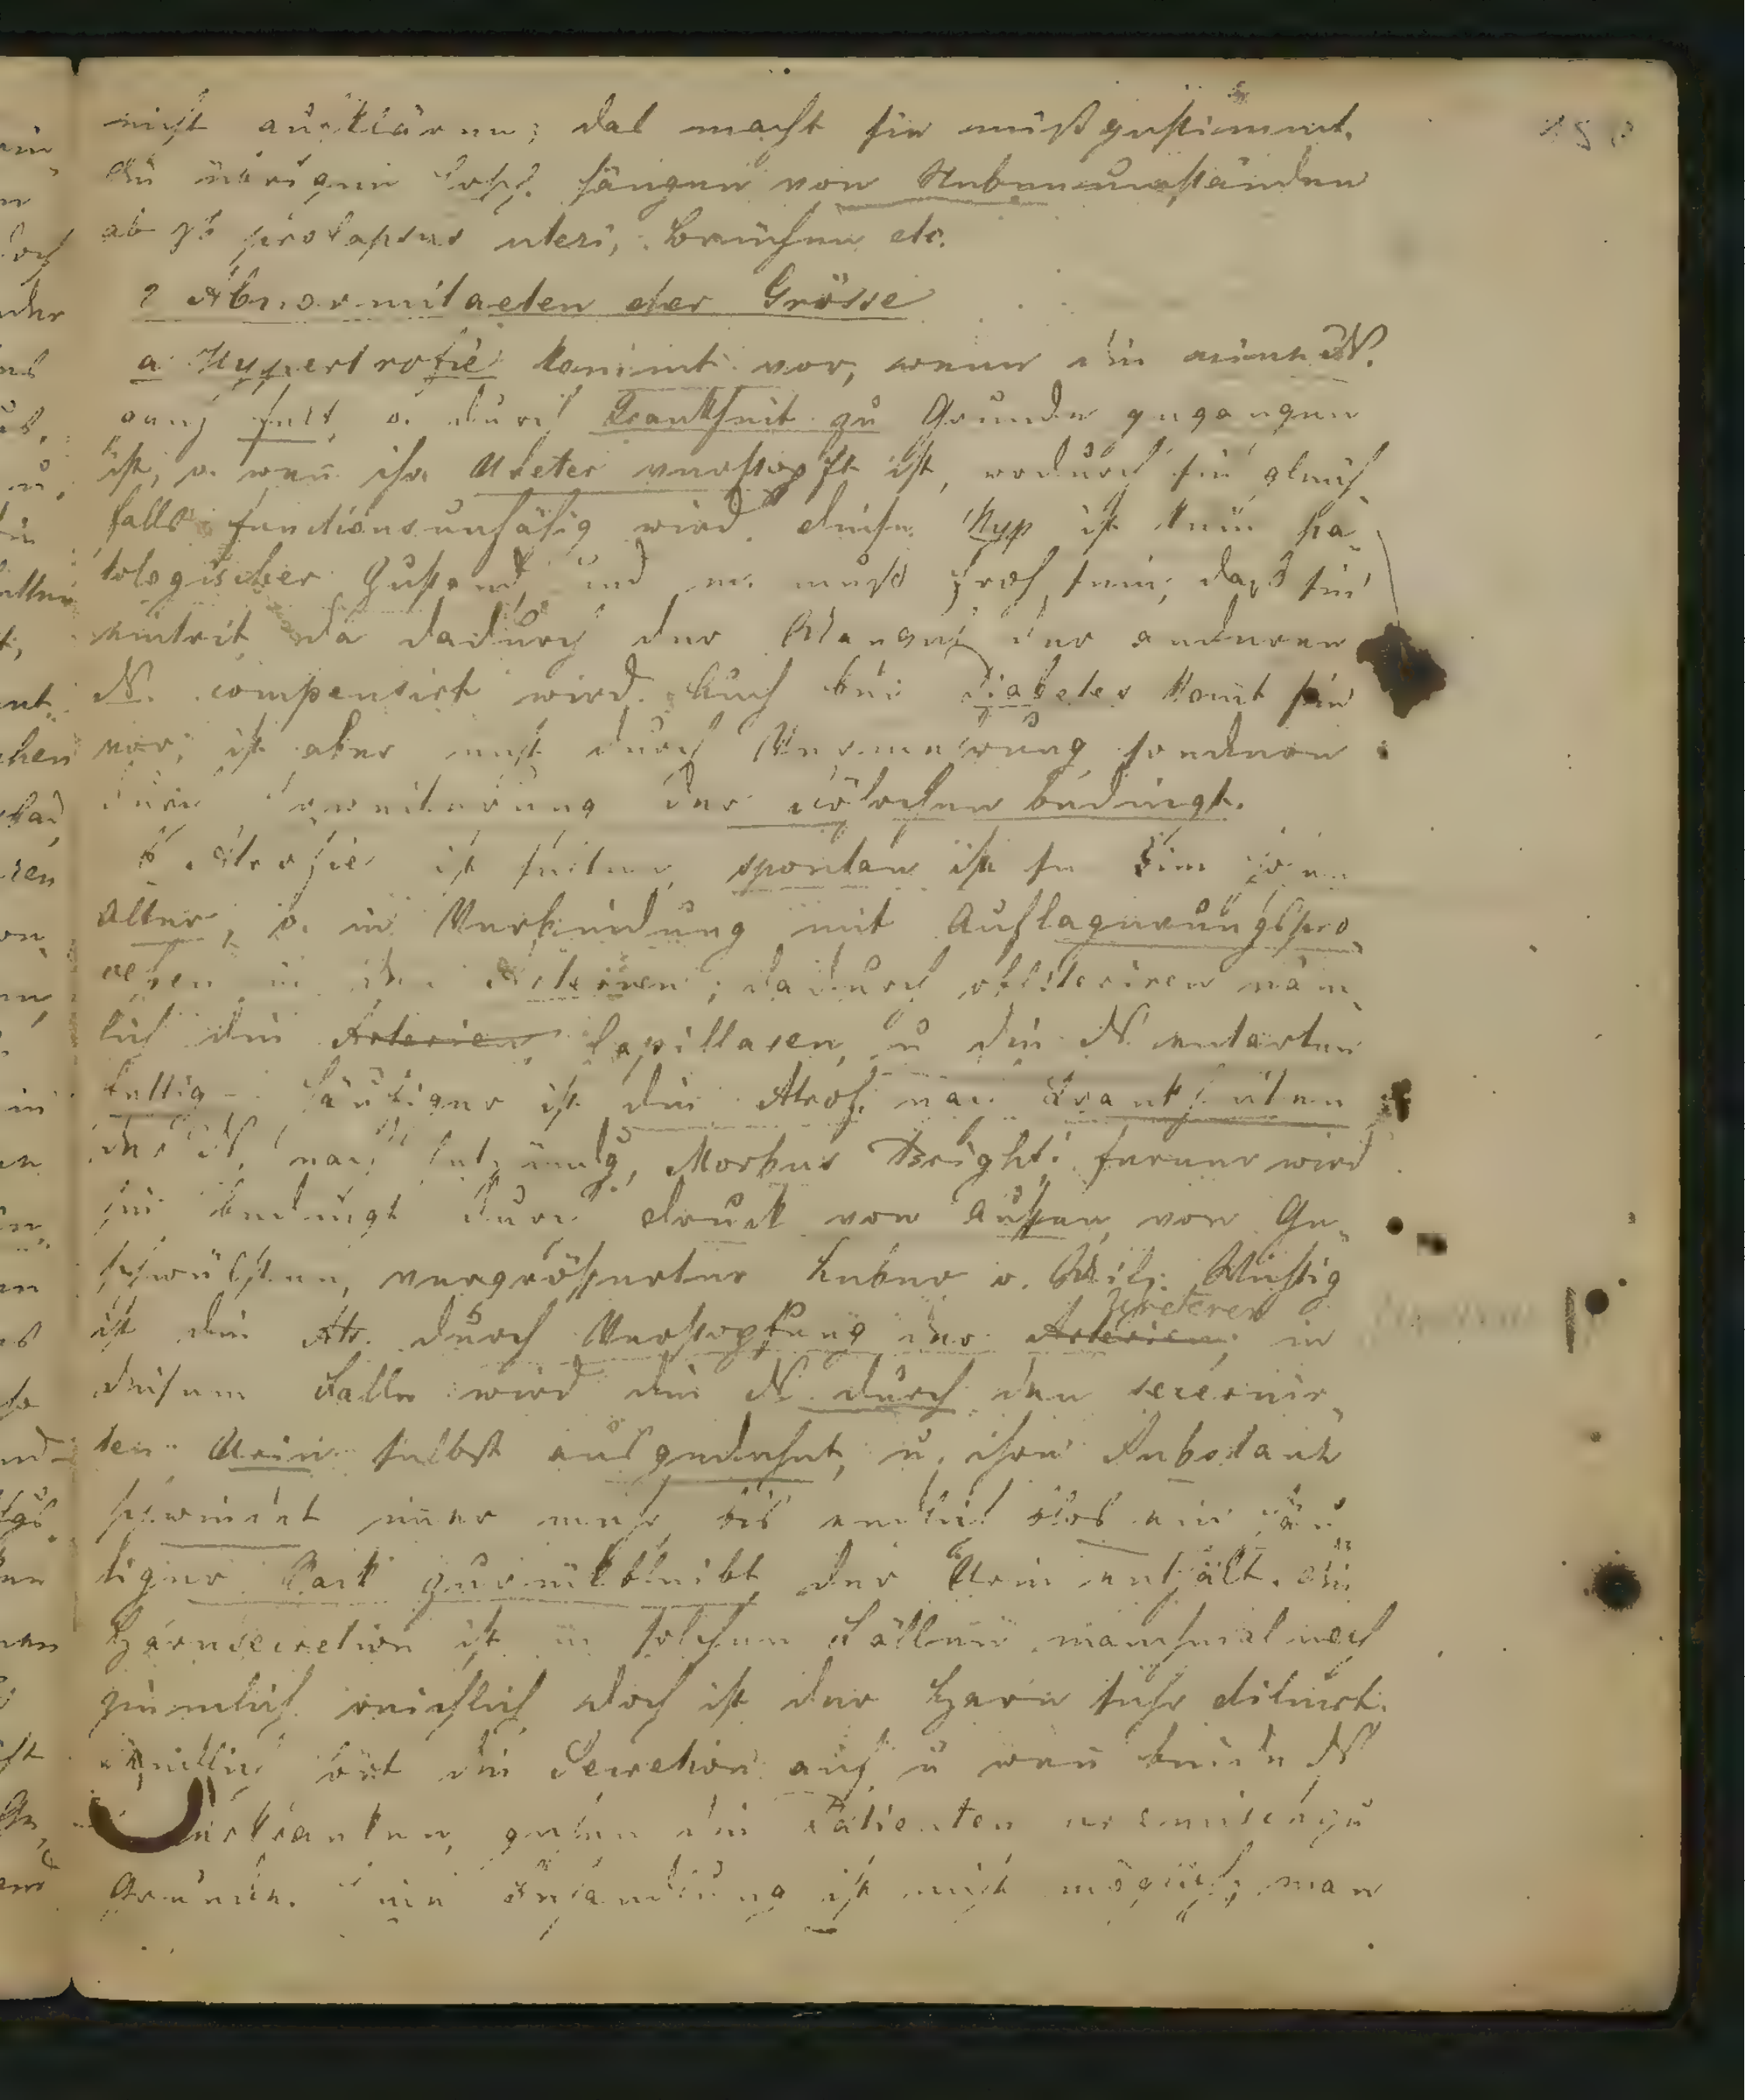 nicht aufklären; das macht sie mißgestimmt.
Die übrigen hängen von Nebenumständen
ab zb prolapsus uteri, Brüchen etc.
2 Abnormitaeten der Grösse
a. Hypertrofie kommt vor, wenn die eine N.
ganz felt, o. durch Krankheit zu Grunde gegangen
ist, o. wen̄ ihr Ureter verstopft ist, wodurch sie gleich
falls functionsunfähig wird. diese Hyp ist kein pa„
tologischer Zustand, und m. muß froh sein, daß sie
eintrit, da dadurch der Mangel der anderen
N. compensirt wird. Auch bei Diabetes kom̄t sie
vor; ist aber nicht durch Vermehrung sondern
durch Erweiterung der Röhrchen bedingt.
b Atrofie ist selten, spontan ist sie im hohen
Alter, o. in Verbindung mit Auflagerungspro„
cessen in den Arterien; dadurch obliteriren näm„
lich die Arterien, Capillaren, u die N. entarten
fettig – Häufiger ist die Atrof. nach Krankheiten
der N. nach Entzündg, Morbus Brighti ferner wird
sie bedingt durch druck von außen, von Ge„
schwülsten, vergrößerter Leber o. Milz. Wichtig
ist die Atr. durch Verstopfung der Arterien; Ureteren in
diesem Falle wird die N. durch den secernir„
ten Urin selbst ausgedehnt, u. ihre Substanz
schwindet im̄er mehr, bis endlich blos ein häu„
tiger Sack zurückbleibt, der Urin enthält. die
Harnsecretion ist in solchen Fällen manchmal noch
ziemlich reichlich, doch ist der Harn sehr diluirt.
Endlich hört die Secretion auf, u wen̄ beide N
erkranken, gehen die Patienten uraemisch zu
Grunde. Eine Behandlung ist nicht möglich, man